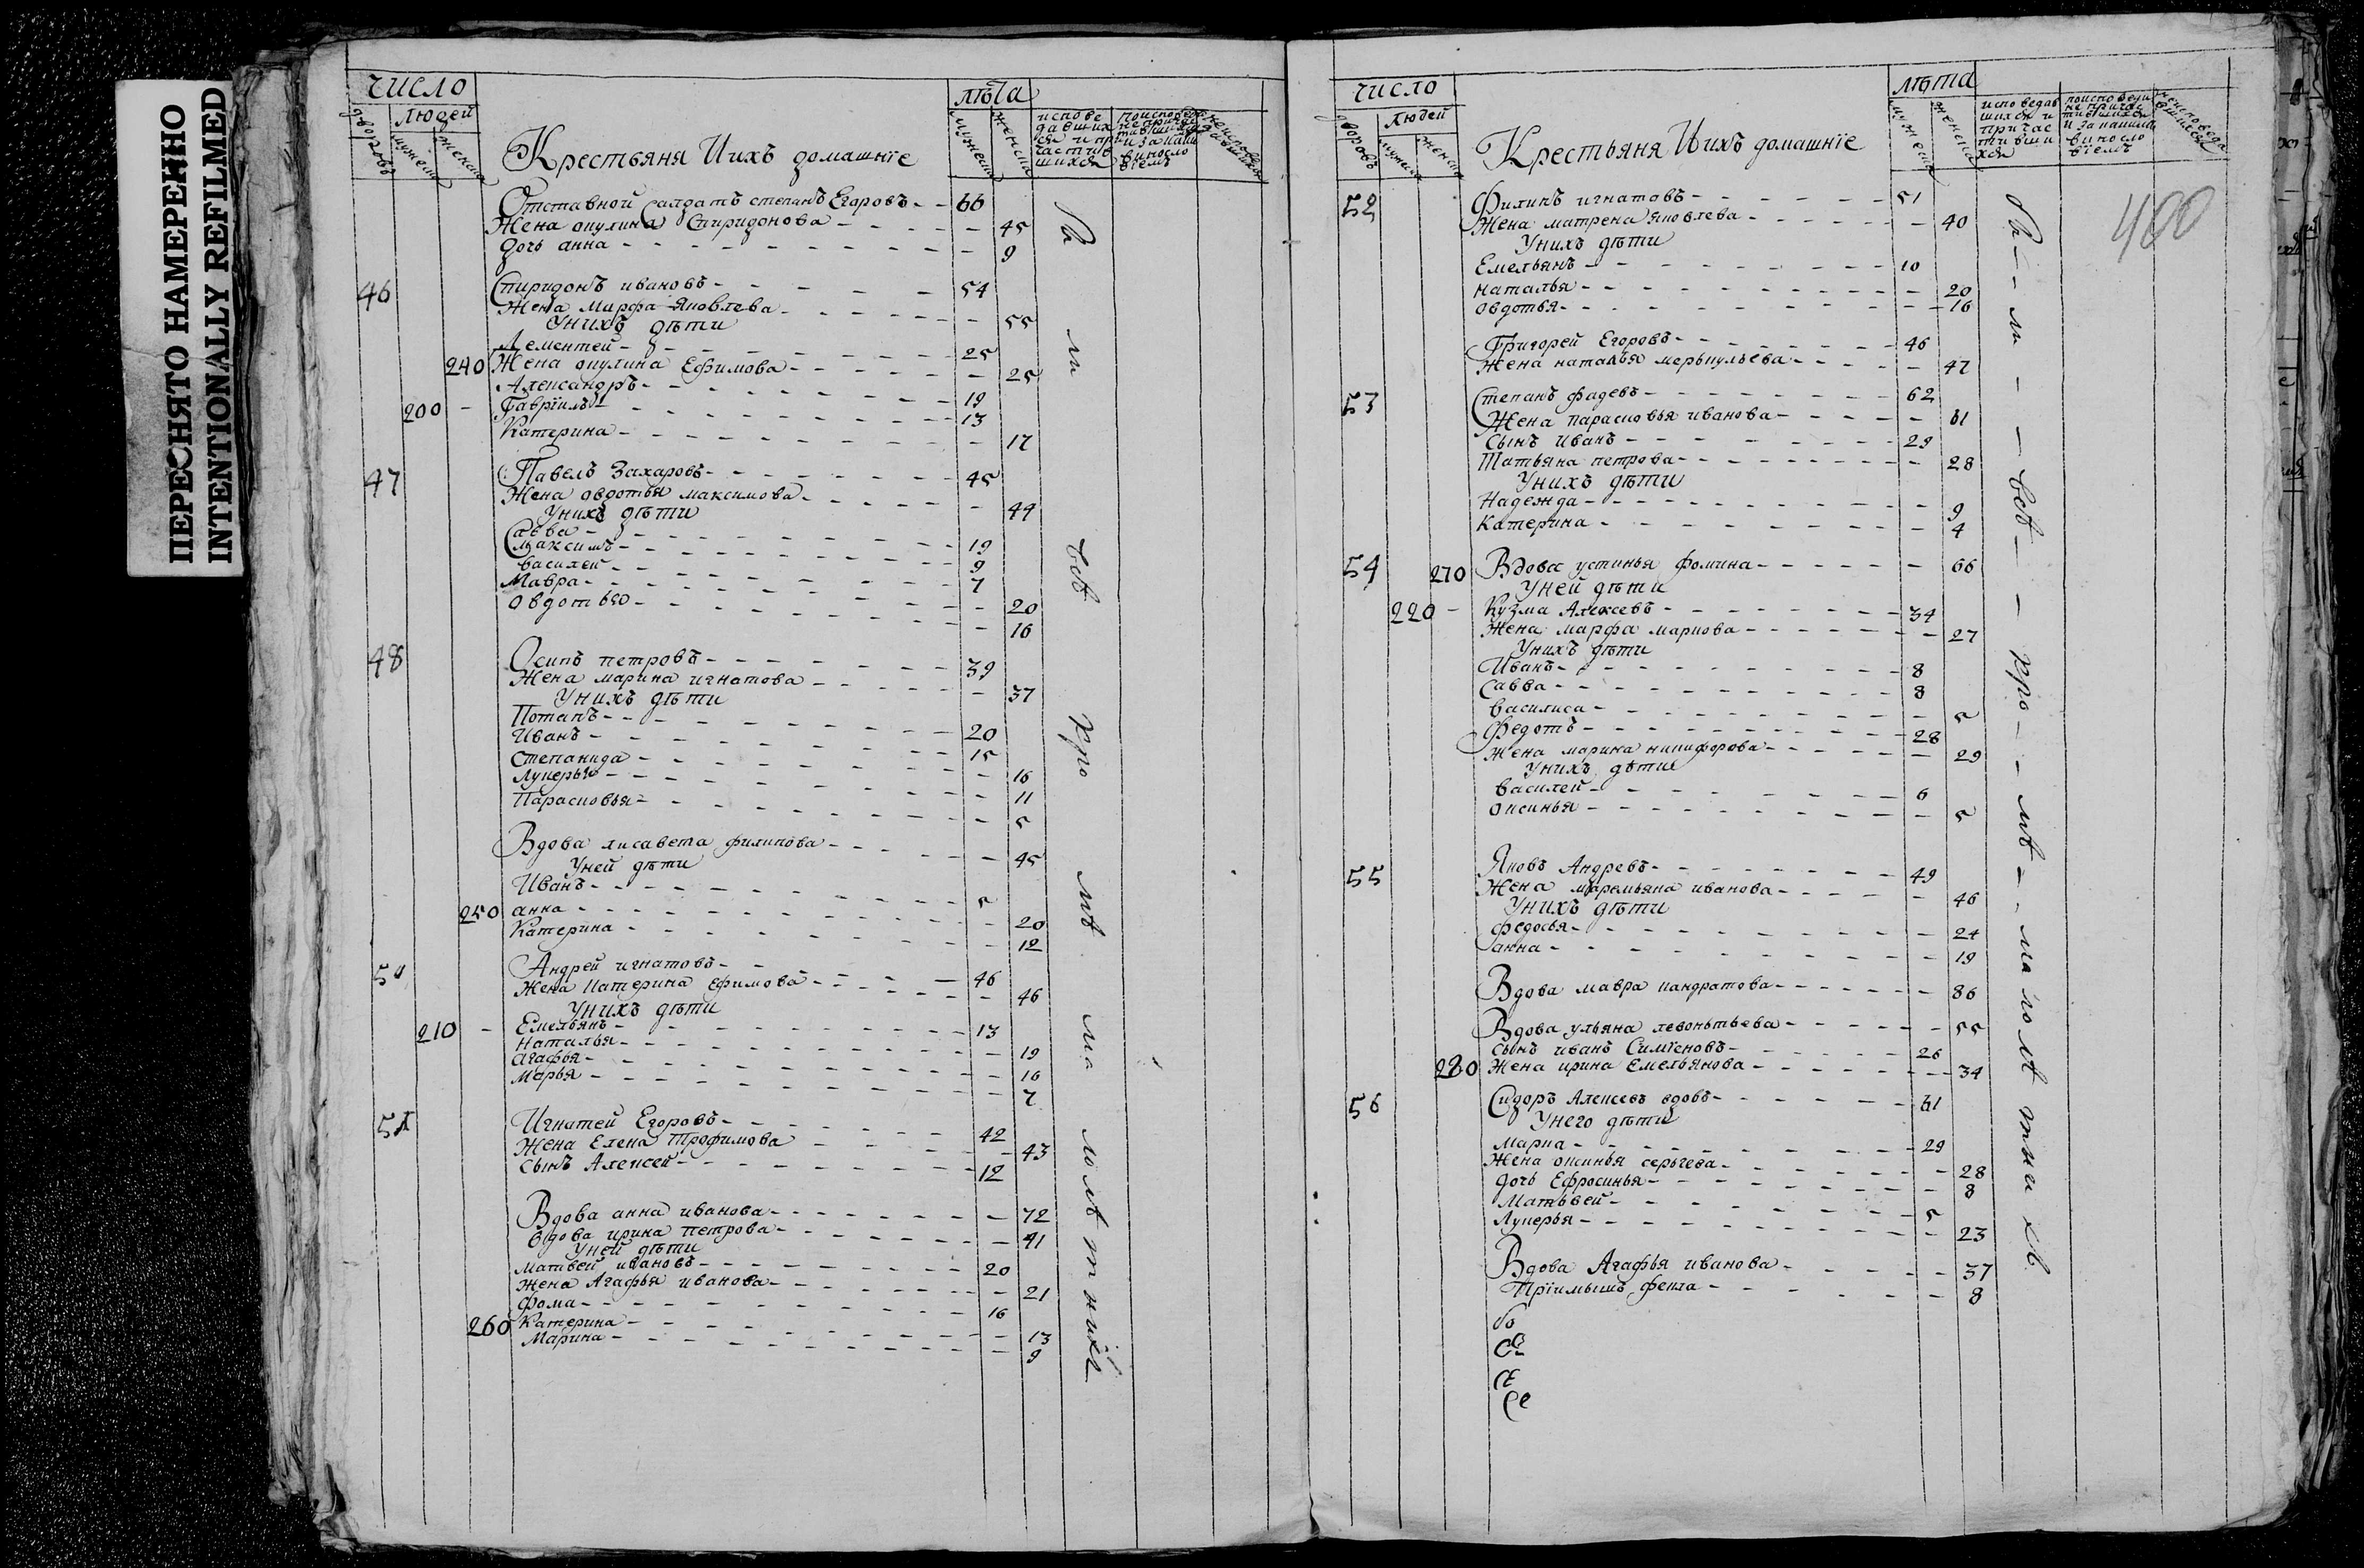 ПЕРЕСНЯТО НАМЕРЕННО
INTENTIONALLY REFILMED
число
людей
дворовъ
мужеска
женска
Крестьяня Иихъ домашнїе
лѣта
мужеска
женска
исповедавшихся и причастившихся
неисповедавшихся
Отставной салдатъ степанъ Егоровъ 66
Жена окулина Спиридонова 45
дочь анна 9
46 Спиридонъ ивановъ 54
Жена Марфа Яковлева 55
Унихъ дѣти
Лементей 25
240 Жена окулина Ефимова 25
Александръ 19
200 Гаврїилъ 13
Катерина 17
47 Павелъ Захаровъ 45
Жена овдотья максимова 44
Унихъ дѣти
Савва 19
Максимъ 9
василей 7
Мавра 20
Овдотья 16
48 Осипъ петровъ 39
Жена марина игнатова 37
Унихъ дѣти
Потапъ 20
Иванъ 15
Степанида 16
Лукерья 11
Парасковья 5
Вдова лисавета филипова 45
Уней дѣти
Иванъ 5
250 анна 20
Катерина 12
Андрей игнатовъ 46
Жена Катерина Ефимова 46
Унихъ дѣти
210 Емельянъ 13
Наталья 19
агафья 16
Марья 7
Игнатей Егоровъ 42
Жена Елена Трофимова 43
сынъ Алексей 12
Вдова анна иванова 72
вдова ирина Петрова 41
Уней дѣти
матвей ивановъ 20
Жена Агафья иванова 21
Фома 16
260 Катерина 13
Марина 9
всѣ
про
мѣ
ма
лолѣтныхъ
число
людей
дворовъ
мужеска
женска
Крестьяня Иихъ домашнїе
лѣта
мужеска
женска
исповедавшихся и причастившихся
неисповедавшихся
400
52 Филипъ игнатовъ 51
Жена матрена Яковлева 40
Унихъ дѣти
Емельянъ 10
наталья 20
овдотья 16
Григорей Егоровъ 46
Жена наталья меркульева 47
53 Степанъ фадевъ 62
Жена парасковья иванова 61
Сынъ иванъ 29
Татьяна петрова 28
Унихъ дѣти
Надежда 9
Катерина 4
54 270 Вдова устинья Фомина 66
Уней дѣти
220 Кузма Алексевъ 34
Жена марфа маркова 27
Унихъ дѣти
Иванъ 8
Савва 8
василиса 5
Федотъ 28
Жена марина никифорова 29
Унихъ дѣти
василей 6
оксинья 5
55 Яковъ Андревъ 49
Жена маремьяна иванова 46
Унихъ дѣти
федосья 24
анна 19
Вдова мавра кандратова 86
Вдова ульяна левонтьева 55
сынъ иванъ Симїеновъ 26
280 Жена ирина Емельянова 34
56 Сидоръ Алексевъ вдовъ 61
Унего дѣти
Марка 29
Жена оксинья серьгева 28
дочь Ефросинья 8
Матьвей 5
Лукерья 23
Вдова Агафья иванова 37
Прїимышъ фекла 8
всѣ
про
мѣ
малолѣтныхъ